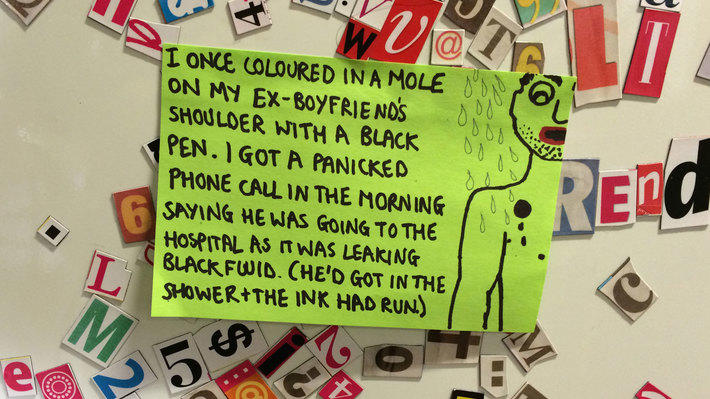 I ONCE COLOURED IN A MOLE
ON MY EX-BOYFRIEND'S
SHOULDER WITH A BLACK
PEN. I GOT A PANICKED
PHONE CALL IN THE MORNING
SAYING HE WAS GOING TO THE
HOSPITAL AS IT WAS LEAKING
BLACK FLUID. (HE'D GOT IN THE
SHOWER + THE INK HAD RUN.)
W V @ S T 6 L I
R E n d
6
L
M 5 $
e 2 @ i 2 4
C